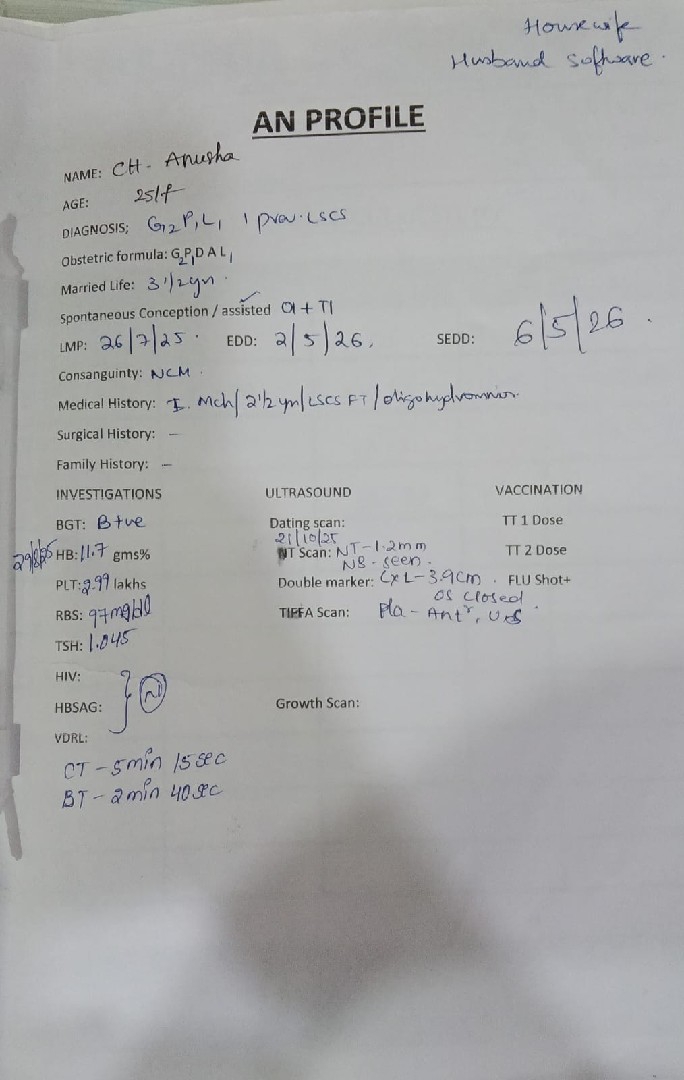 Housewife
Husband software.
AN PROFILE
NAME: CH. Anusha
AGE: 25/f
DIAGNOSIS; G2P1L1 1 prev. LSCS
Obstetric formula: G2P1D A L1
Married Life: 3 1/2 yrs.
Spontaneous Conception / assisted ✓ OI + TI
LMP: 26/7/25. EDD: 2/5/26. SEDD: 6/5/26.
Consanguinty: NCM.
Medical History: I. Mch/ 2 1/2 yrs/ LSCS FT / oligohydramnios.
Surgical History: —
Family History: —
INVESTIGATIONS ULTRASOUND VACCINATION
BGT: B+ve Dating scan: TT 1 Dose
21/10/25
HB: 11.7 gms% NT Scan: NT - 1.2mm TT 2 Dose
NB - seen.
PLT: 2.99 lakhs Double marker: Cx L - 3.9cm. FLU Shot+
OS closed
RBS: 97mg/dl TIFFA Scan: Pla - Antr, US
TSH: 1.045
HIV:
HBSAG: Growth Scan:
VDRL:
CT - 5min 15sec
BT - 2min 40sec